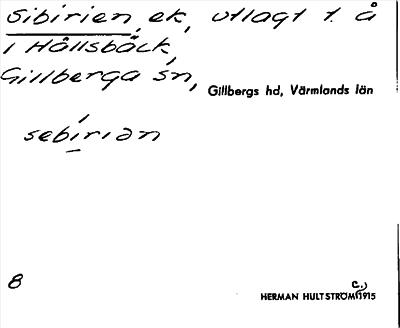 Sibirien, ek, utlagt t. å
i Hållsbäck,
Gillberga sn,
Gillbergs hd, Värmlands län
sebirian
8
HERMAN HULTSTRÖM (C.) 1915